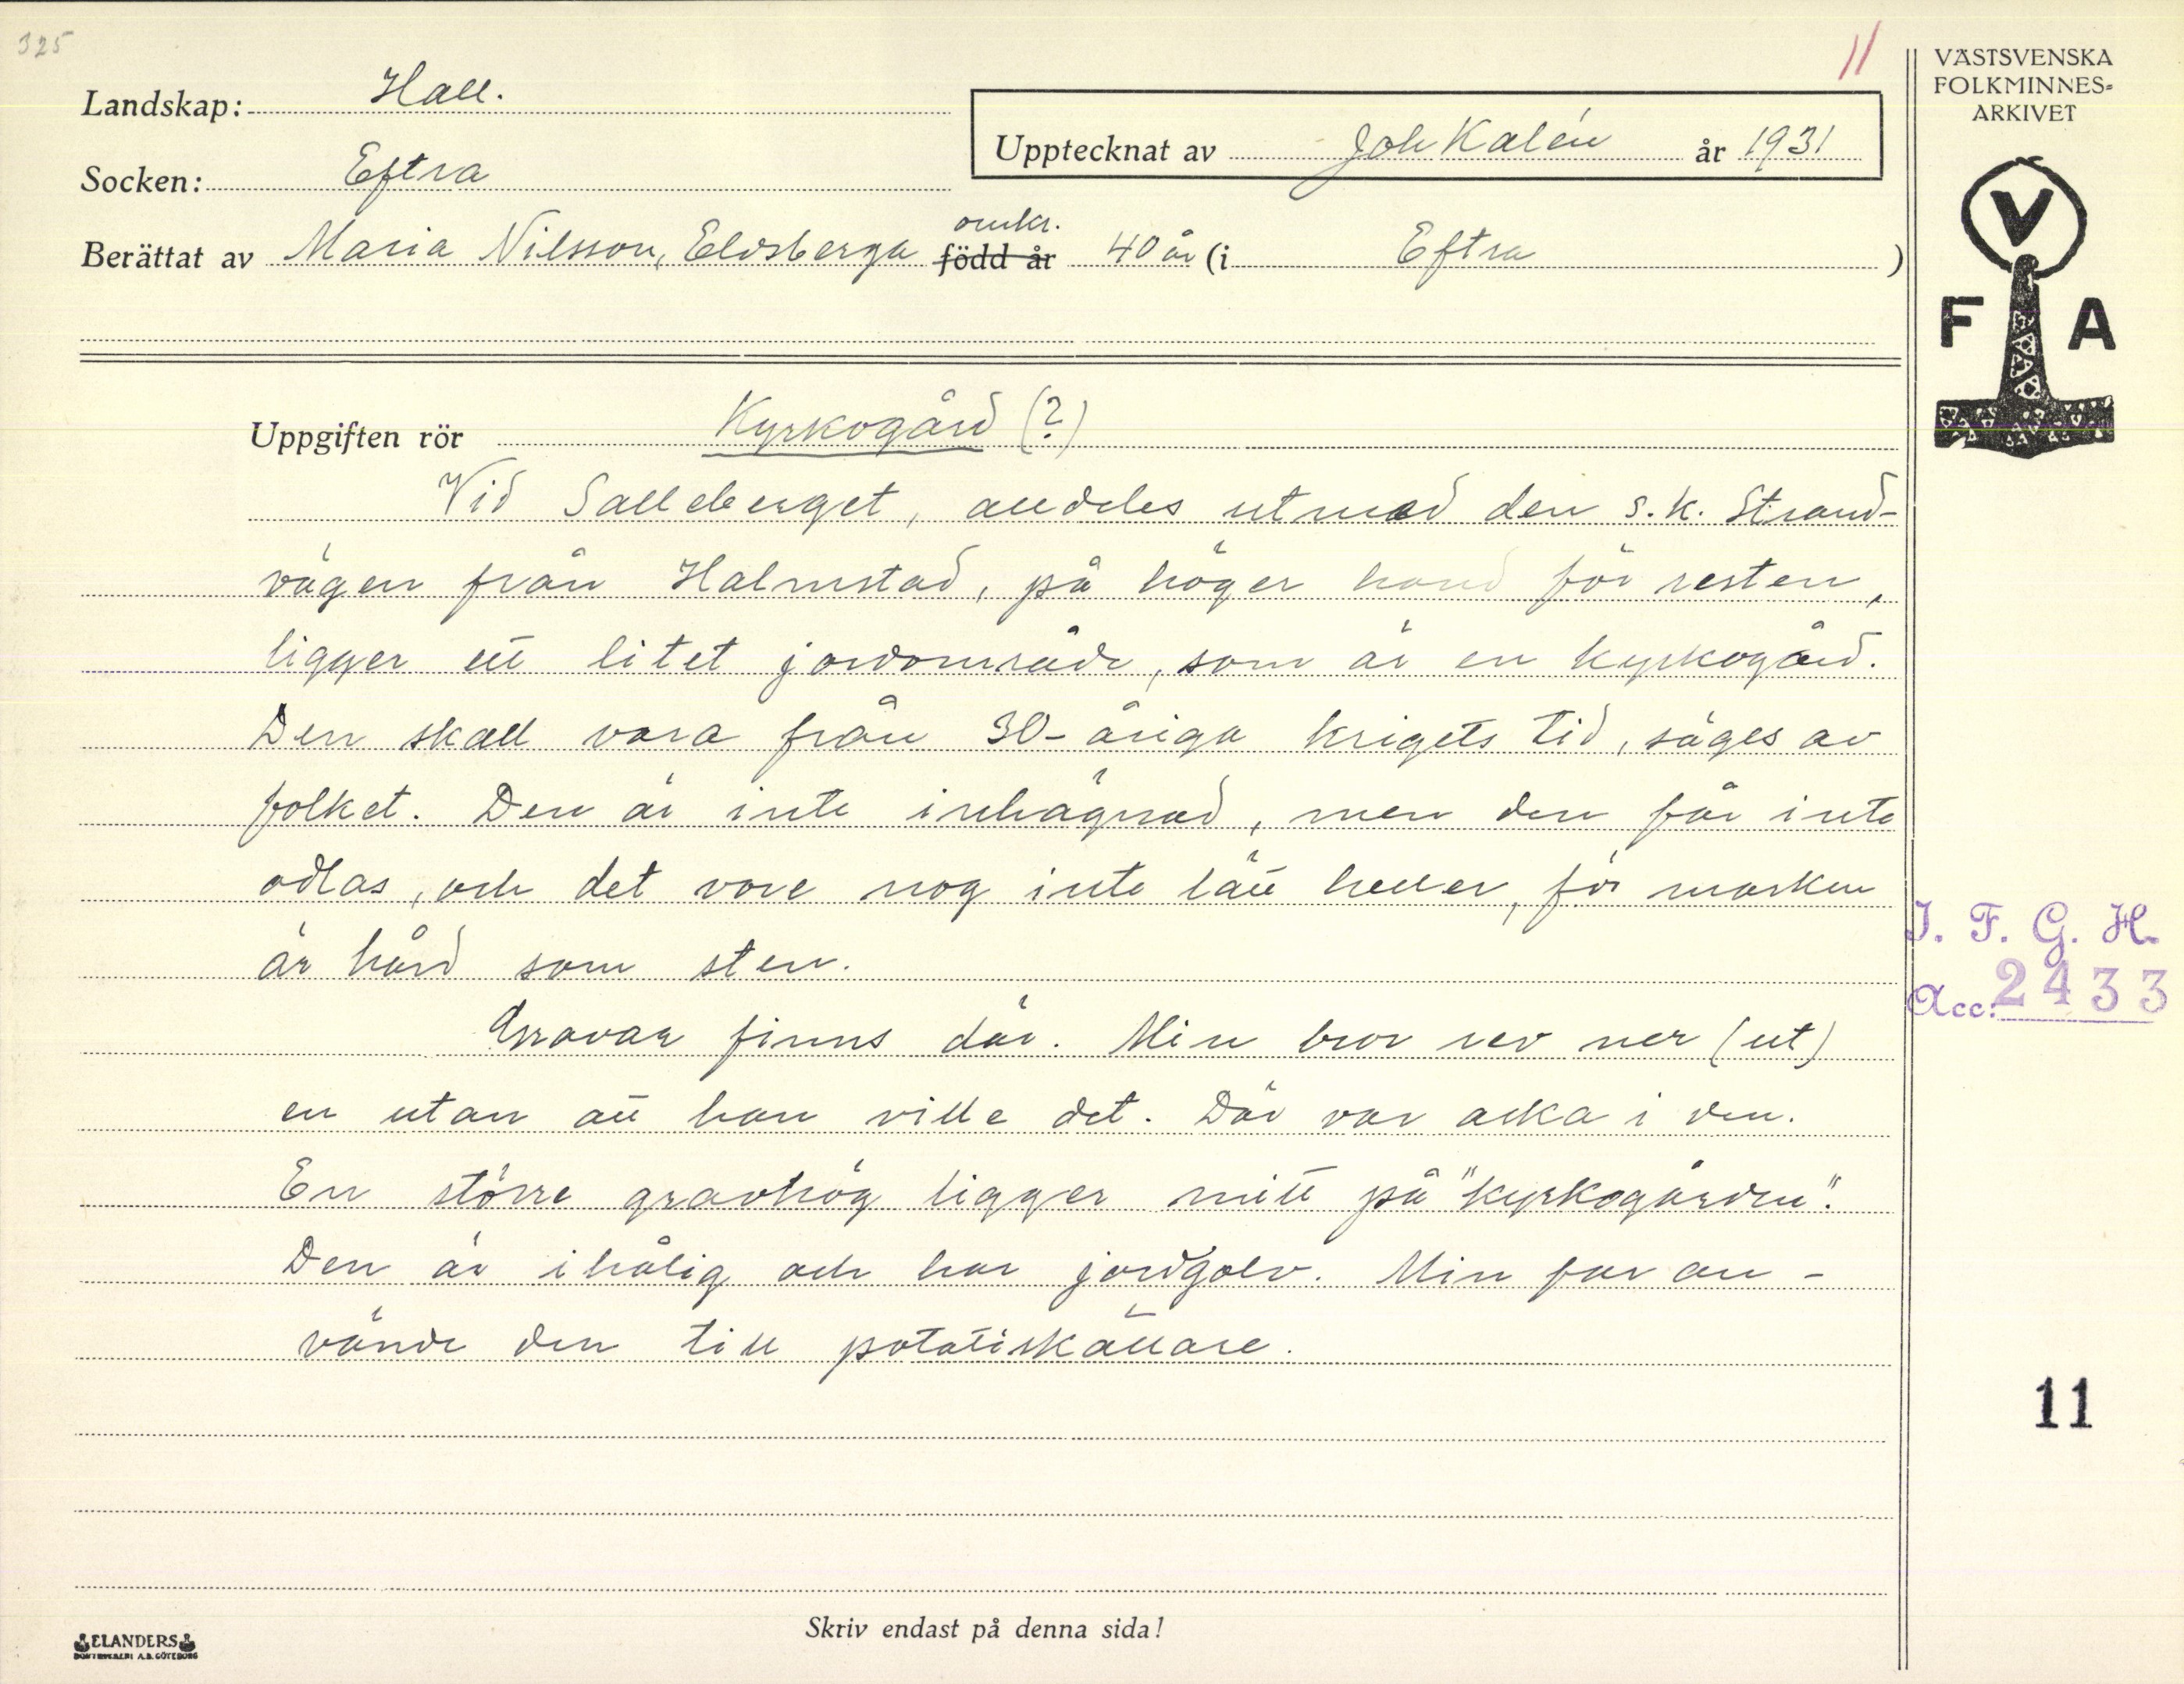 325
11
VÄSTSVENSKA
FOLKMINNES-
ARKIVET
Landskap: Hall.
Upptecknat av Joh Kalén år 1931
Socken: Eftra
Berättat av Maria Nilsson, Eldsberga omkr. född år 40 år (i Eftra )
V
F A
Uppgiften rör Kyrkogård (?)
Vid Salleberget, alldeles utmed den s.k. Strand-
vägen från Halmstad, på höger hand för resten,
ligger ett litet jordområde, som är en kyrkogård.
Den skall vara från 30-åriga krigets tid, säges av
folket. Den är inte inhägnad, men den får inte
odlas, och det vore nog inte lätt heller, för marken
är hård som sten.
Gravar finns där. Min bror rev ner (ut)
en utan att han ville det. Där var aska i den.
En större gravhög ligger mitt på "kyrkogården".
Den är ihålig och har jordgolv. Min far an-
vände den till potatiskällare.
I. F. G. H.
Acc. 2433
11
Skriv endast på denna sida!
ELANDERS
BOKTRYCKERI A.B. GÖTEBORG